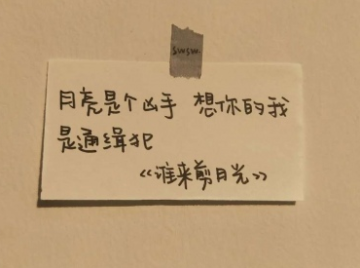 swsw
月亮是个凶手 想你的我
是通缉犯
《谁来剪月光》